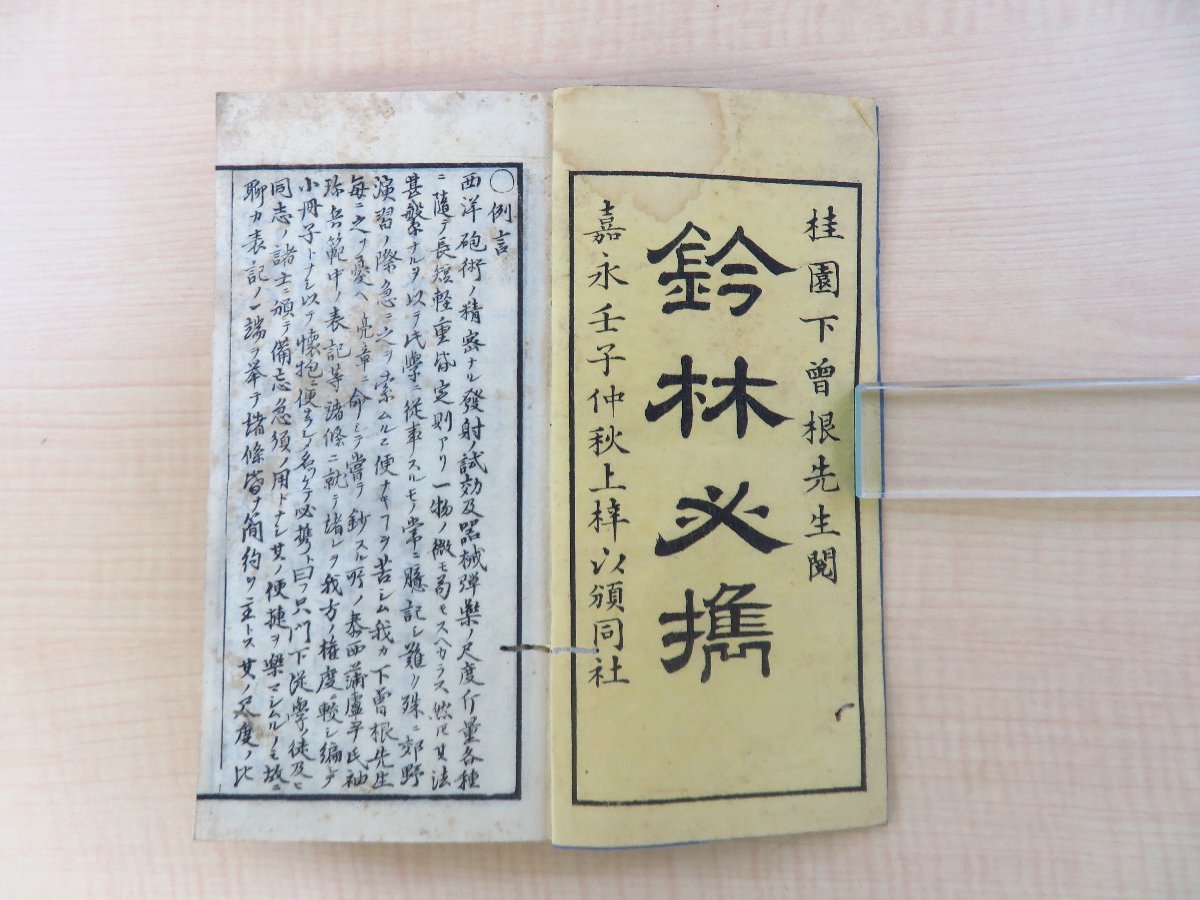 桂園下曾根先生閲
鈐林必携
嘉永壬子仲秋上梓以頒同社
〇例言
西洋砲術ノ精密ナル發射ノ試効及器械彈藥ノ尺度斤量各種
ニ隨テ長短輕重皆定則アリ一物ノ微モ苟モスヘカラス然ルニ其法
甚繁ナルヲ以テ此學ニ從事スルモノ常ニ臆記シ難ク殊ニ郊野
演習ノ際急ニ之ヲ索ムルニ便ナキヿヲ苦シム我カ下曾根先生
毎ニ之ヲ憂ヘ亮章ニ命シテ嘗テ鈔スル所ノ泰西蒲盧平氏袖
珍兵範中ノ表記等諸條ニ就テ諸レヲ我方ノ權度ニ較シ編テ
小冊子トナシ以テ懷抱ニ便ナラシメ名ツケテ必携ト曰フ只門下從學ノ徒及ヒ
同志ノ諸士ニ頒テ備忘急須ノ用トナシ其ノ便捷ヲ樂マシムルノミ故ニ
聊カ表記ノ一端ヲ擧テ諸條皆ナ簡約ヲ主トス其ノ尺度ノ比